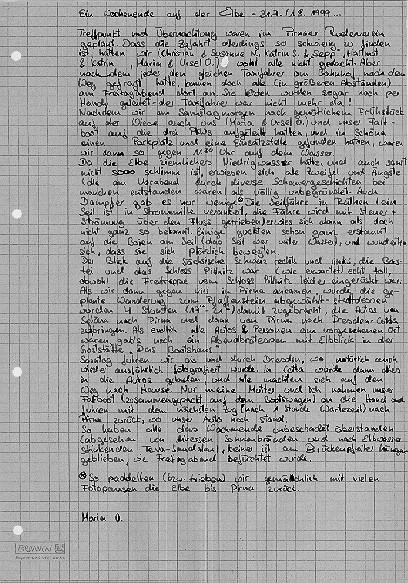 Ein Wochenende auf der Elbe - 31.7./1.8.1999...
Treffpunkt und Übernachtung waren im Pirnaer Ruderverein
geplant. Dass die Zufahrt allerdings so schwierig zu finden
ist hätten wir (Christin & Susanne M., Katrin S. & Sepp, Hartmut
& Katrin, Maria & Ursel O.) wohl alle nicht gedacht. Aber
nachdem jeder den gleichen Taxifahrer am Bahnhof nach dem
Weg gefragt hatte, kamen doch alle (in größeren Abständen)
am Freitagabend dort an. Wir leiden wurden sogar noch per
Handy geleitet - der Taxifahrer war nicht mehr ein!
Nachdem wir am Samstagmorgen nach gemütlichem Frühstück
auch mit Diana auch und (Maria & Ursel O.) und unser Falt-
boot auf die drei PKWs aufgeteilt hatten und in Schöna
einen Parkplatz und eine Einsatzstelle gefunden hatten, waren
wir dann so gegen 11.00 Uhr auf dem Wasser.
Da die Elbe ziemliches Niedrigwasser hatte und auch sonst
nicht so schlimm ist, erwiesen sich alle Zweifel und Ängste
(die am Vorabend durch diverse Schauergeschichten bei
manchen entstanden waren) als völlig unbegründet. Auch
Dampfer gab es nur wenige.* Die Seilfähre in Rathen (ein
Seil ist in Stromrichtung verankert, die Fähre wird mit Steuer +
Strömung über den Fluss getrieben) erwies sich dann als doch
nicht ganz so bekannt. Einige guckten schon ganz erstaunt
auf die Bojen am Seil (das Seil war unter Wasser), und wunderten
sich, dass sie sich plötzlich bewegten.
Der Blick auf die Sächsische Schweiz, rechts und links, die Bas-
tei und das Schloss Pillnitz war (wie erwartet) echt toll,
obwohl die Freitreppe vom Schloss Pillnitz leider eingerüstet war.
Als wir dann gegen in Pirna ankamen, wurde die ge-
plante Wanderung zum Pfaffenstein abgewählt. Stattdessen
wurden 4 Stunden damit zugebracht, die Autos von
Schöna nach Pirna und dann von Pirna nach Dresden-Cotta
zubringen. Als endlich alle Autos & Personen am vorgesehenen Ort
waren gab's noch ein Abendbrotessen mit Elbblick in der
Gaststätte "Das Bootshaus".
Sonntag fuhren wir und durch Dresden, wo natürlich auch
wieder ausführlich fotografiert wurde. In Cotta wurde dann alles
in die Autos geladen, und alle machten sich auf den
Weg nach Hause. Nur meine Mutter und ich nahmen unser
Faltboot (zusammengepackt auf dem Bootswagen) an die Hand und
fuhren mit dem nächsten Zug (nach 1 Stunde Wartezeit) nach
Pirna zurück, wo unser Auto noch stand.
So haben alle das Wochenende unbeschadet überstanden
(abgesehen von einigen Sonnenbränden und nach Elbwasser
stinkenden Teva-Sandalen), keiner ist am Brückenpfeiler hängen
geblieben, wie Freitagabend befürchtet wurde.
* So paddelten (bzw. trieben) wir gemütlich mit vielen
Fotopausen die Elbe bis Pirna zurück.
Maria O.
BRUNNEN